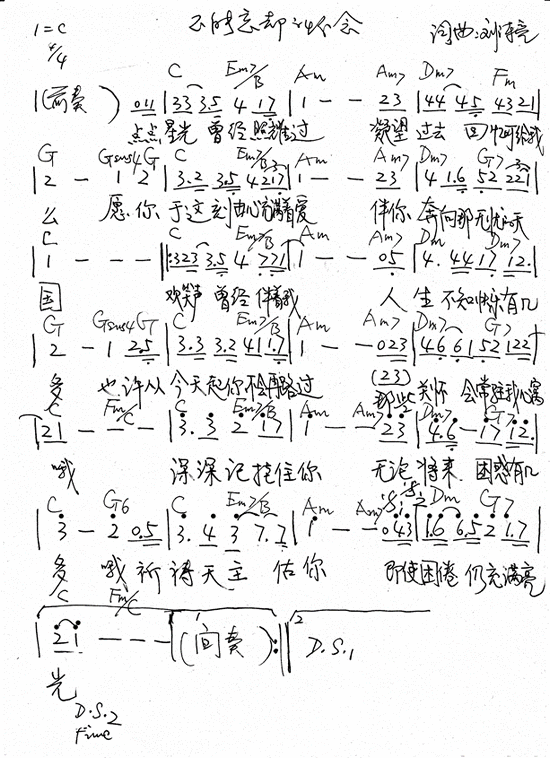 1=C 不能忘却的怀念 词曲:刘诗亮
4/4
C Em7/B Am Am7 Dm7 Fm
|(前奏 ) 011|33 35 4 17|1 - - 23|44 45 4321|
点点星光 曾经照耀过 凝望 过去 回忆可给我
G Gsus4 G C Em7/B Am Am7 Dm7 G7
|2 - 1 2|3.2 35 4217|1 - - 23|4 1.6 52 221|
么 愿你 于这刻 充满着爱 伴你 奔向那无忧的天
C C Em7/B Am Am7 Dm Dm7
|1 - - -|:323 35 4 771|1 - - 05|4. 44 17 12.|
国 欢笑声 曾经 伴着我 人 生 不知快乐有几
G Gsus4 G7 C Em7/B Am Am7 Dm7 G7
|2 - 1 2.5|3.3 3.2 41 1.7|1 - - 023|46 61 52 122|
多 也许从 今天起你不会再路过 (23) 那些 关怀 会常驻我心窝
C Fm/C C Em7/B Am Am7 Dm7 G7
|21 - - -|3. 3 2 17|1 - - 23|4.6 - 17 12.|
哦 深深记挂住你 无论 将来 困惑有几
C G6 C Em7/B Am Am7 Dm G7
|3 - 2 0.5|3. 4 3 7.7|1 - - 043|1.6 6.5 2 1.7|
多 哦 祈祷天主 佑你 即使困倦 仍充满亮
C Fm/C
|21 - - -|(间奏):|| D.S.1
光
D.S.2
Fine